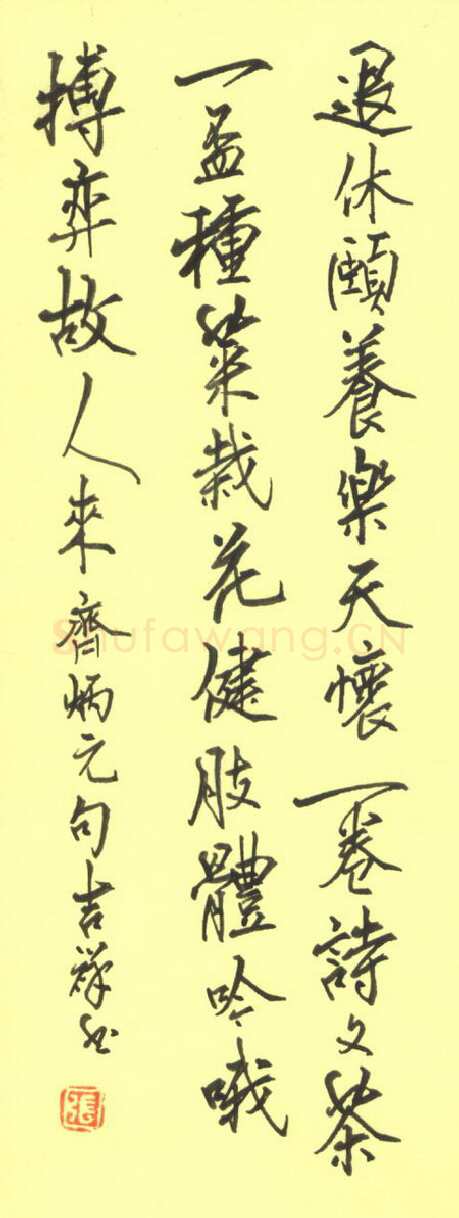 退休頤養樂天懷一卷詩文茶
一盃種菜栽花健肢體吟哦
搏弈故人來齊炳元句吉祥書
張
Shufawang.CN